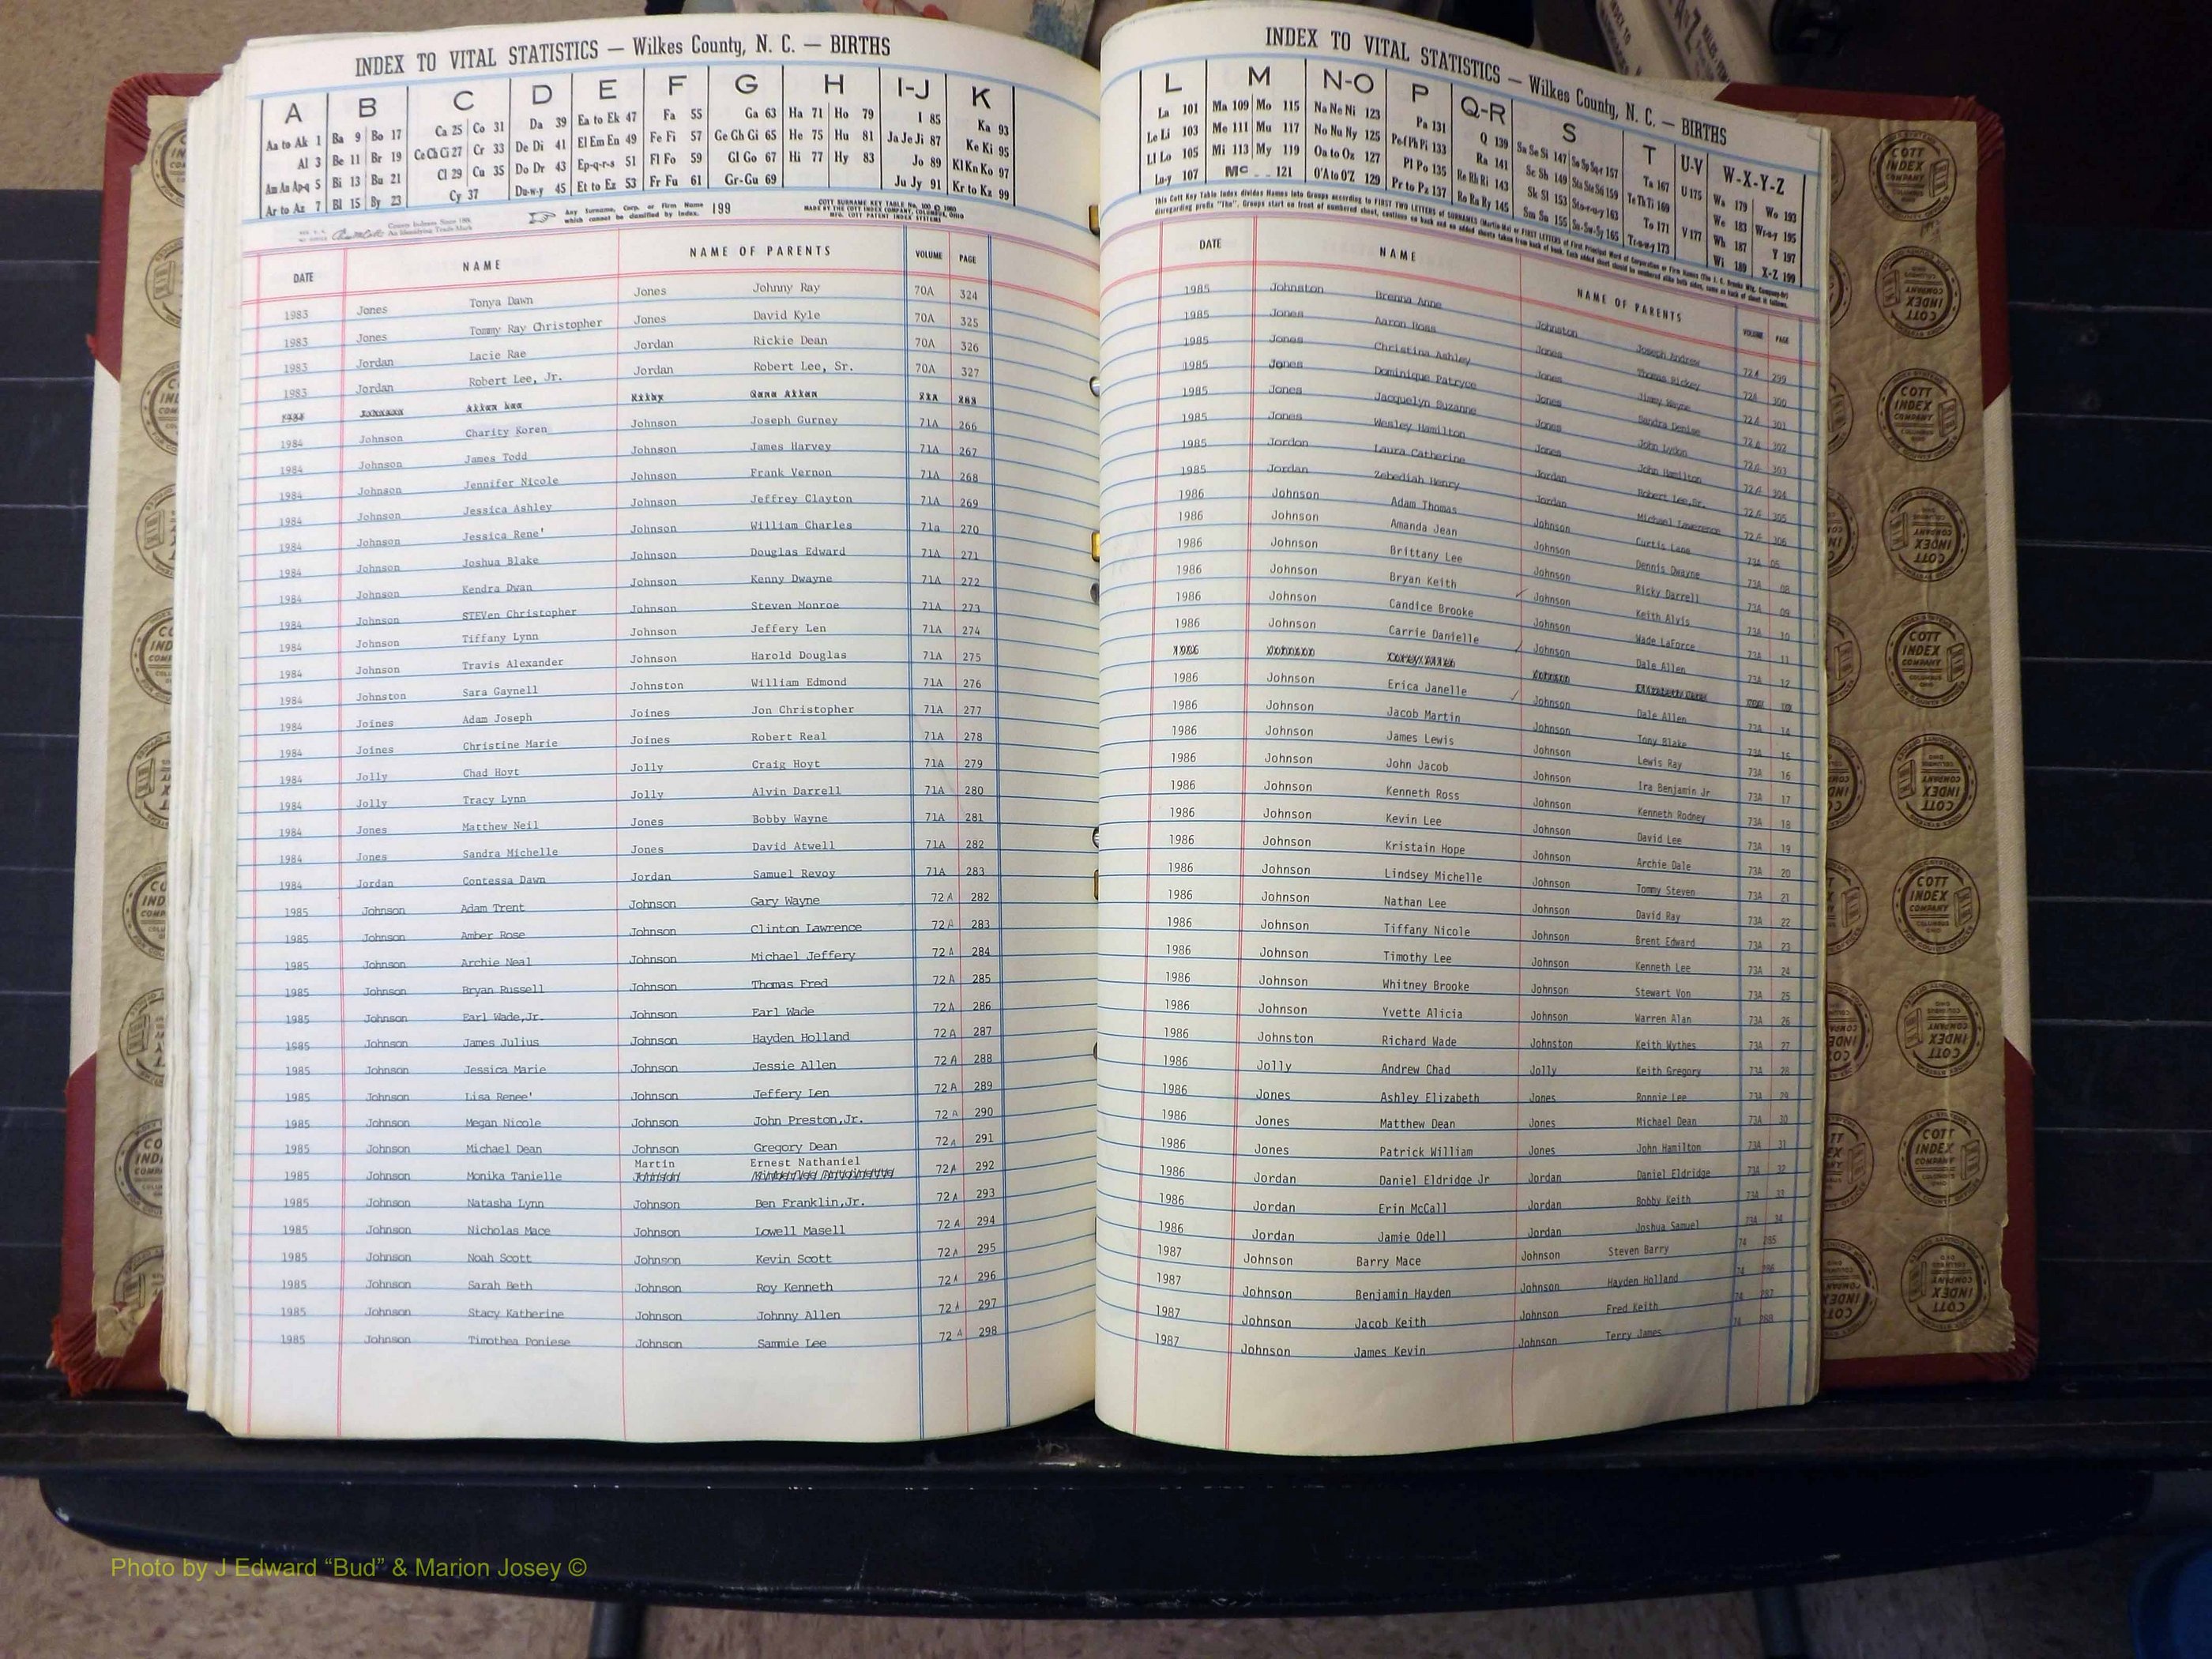 INDEX TO VITAL STATISTICS — Wilkes County, N. C. — BIRTHS
A B C D E F G H I-J K
Aa to Ak 1 Ba 9 Bo 17 Ca 25 Co 31 Da 39 Ea to Ek 47 Fa 55 Ga 63 Ha 71 Ho 79 I 85 Ka 93
Al 3 Be 11 Br 19 Ce Ch Ci 27 Cr 33 De Di 41 El Em En 49 Fe Fi 57 Ge Gh Gi 65 He 75 Hu 81 Ja Je Ji 87 Ke Ki 95
Am An Ap-q 5 Bi 13 Bu 21 Cl 29 Cu 35 Do Dr 43 Ep-q-r-s 51 Fl Fo 59 Gl Go 67 Hi 77 Hy 83 Jo 89 Kl Kn Ko 97
Ar to Az 7 Bl 15 By 23 Cy 37 Du-w-y 45 Et to Ez 53 Fr Fu 61 Gr-Gu 69 Ju Jy 91 Kr to Kz 99
Any Surname, Corp. or Firm Name which cannot be classified by Index. 199
COTT SURNAME KEY TABLE No. 100
MADE BY THE COTT INDEX COMPANY, COLUMBUS, OHIO
MFG. COTT PATENT INDEX SYSTEMS
DATE NAME NAME OF PARENTS VOLUME PAGE
1983 Jones Tonya Dawn Jones Johnny Ray 70A 324
1983 Jones Tommy Ray Christopher Jones David Kyle 70A 325
1983 Jordan Lacie Rae Jordan Rickie Dean 70A 326
1983 Jordan Robert Lee, Jr. Jordan Robert Lee, Sr. 70A 327
1984 Johnson Charity Koren Johnson Joseph Gurney 71A 266
1984 Johnson James Todd Johnson James Harvey 71A 267
1984 Johnson Jennifer Nicole Johnson Frank Vernon 71A 268
1984 Johnson Jessica Ashley Johnson Jeffrey Clayton 71A 269
1984 Johnson Jessica Rene' Johnson William Charles 71a 270
1984 Johnson Joshua Blake Johnson Douglas Edward 71A 271
1984 Johnson Kendra Dwan Johnson Kenny Dwayne 71A 272
1984 Johnson STEVen Christopher Johnson Steven Monroe 71A 273
1984 Johnson Tiffany Lynn Johnson Jeffery Len 71A 274
1984 Johnson Travis Alexander Johnson Harold Douglas 71A 275
1984 Johnston Sara Gaynell Johnston William Edmond 71A 276
1984 Joines Adam Joseph Joines Jon Christopher 71A 277
1984 Joines Christine Marie Joines Robert Real 71A 278
1984 Jolly Chad Hoyt Jolly Craig Hoyt 71A 279
1984 Jolly Tracy Lynn Jolly Alvin Darrell 71A 280
1984 Jones Matthew Neil Jones Bobby Wayne 71A 281
1984 Jones Sandra Michelle Jones David Atwell 71A 282
1984 Jordan Contessa Dawn Jordan Samuel Revoy 71A 283
1985 Johnson Adam Trent Johnson Gary Wayne 72 A 282
1985 Johnson Amber Rose Johnson Clinton Lawrence 72 A 283
1985 Johnson Archie Neal Johnson Michael Jeffery 72 A 284
1985 Johnson Bryan Russell Johnson Thomas Fred 72 A 285
1985 Johnson Earl Wade,Jr. Johnson Earl Wade 72 A 286
1985 Johnson James Julius Johnson Hayden Holland 72 A 287
1985 Johnson Jessica Marie Johnson Jessie Allen 72 A 288
1985 Johnson Lisa Renee' Johnson Jeffery Len 72 A 289
1985 Johnson Megan Nicole Johnson John Preston,Jr. 72 A 290
1985 Johnson Michael Dean Johnson Gregory Dean 72 A 291
Martin Ernest Nathaniel
1985 Johnson Monika Tanielle Johnson 72 A 292
1985 Johnson Natasha Lynn Johnson Ben Franklin,Jr. 72 A 293
1985 Johnson Nicholas Mace Johnson Lowell Masell 72 A 294
1985 Johnson Noah Scott Johnson Kevin Scott 72 A 295
1985 Johnson Sarah Beth Johnson Roy Kenneth 72 A 296
1985 Johnson Stacy Katherine Johnson Johnny Allen 72 A 297
1985 Johnson Timothea Poniese Johnson Sammie Lee 72 A 298
INDEX TO VITAL STATISTICS — Wilkes County, N. C. — BIRTHS
L M N-O P Q-R S T U-V W-X-Y-Z
La 101 Ma 109 Mo 115 Na Ne Ni 123 Pa 131 Q 139 Sa Se Si 147 So Sp Sq-r 157 Ta 167 U 175 Wa 179 Wo 193
Le Li 103 Me 111 Mu 117 No Nu Ny 125 Pe-f Ph Pi 133 Ra 141 Sc Sh 149 Sta Ste Sti 159 Te Th Ti 169 V 177 We 183 Wr-u-y 195
Ll Lo 105 Mi 113 My 119 Oa to Oz 127 Pl Po 135 Re Rh Ri 143 Sk Sl 153 Sto-r-u-y 163 To 171 Wh 187 Y 197
Lu-y 107 Mc 121 O'A to O'Z 129 Pr to Pz 137 Ro Ru Ry 145 Sm Sn 155 Su-Sw-Sy 165 Tr-u-w-y 173 Wi 189 X-Z 199
DATE NAME NAME OF PARENTS VOLUME PAGE
1985 Johnston Brenna Anne Johnston Joseph Andrew 72 A 299
1985 Jones Aaron Ross Jones Thomas Rickey 72A 300
1985 Jones Christina Ashley Jones Jimmy Wayne 72 A 301
1985 Jones Dominique Patryce Jones Sandra Denise 72 A 302
1985 Jones Jacquelyn Suzanne Jones John Lydon 72A 303
1985 Jones Wesley Hamilton Jones John Hamilton 72A 304
1985 Jordon Laura Catherine Jordan Robert Lee,Sr. 72A 305
1985 Jordan Zebediah Henry Jordan Michael Lawerence 72A 306
1986 Johnson Adam Thomas Johnson Curtis Lane 73A
1986 Johnson Amanda Jean Johnson Dennis Dwayne 73A 08
1986 Johnson Brittany Lee Johnson Ricky Darrell 73A 09
1986 Johnson Bryan Keith Johnson Keith Alvis 73A 10
1986 Johnson Candice Brooke Johnson Wade LaForce 73A 11
1986 Johnson Carrie Danielle Johnson Dale Allen 73A 12
1986 Johnson Erica Janelle Johnson Dale Allen 73A 14
1986 Johnson Jacob Martin Johnson Tony Blake 73A 15
1986 Johnson James Lewis Johnson Lewis Ray 73A 16
1986 Johnson John Jacob Johnson Ira Benjamin Jr 73A 17
1986 Johnson Kenneth Ross Johnson Kenneth Rodney 73A 18
1986 Johnson Kevin Lee Johnson David Lee 73A 19
1986 Johnson Kristain Hope Johnson Archie Dale 73A 20
1986 Johnson Lindsey Michelle Johnson Tommy Steven 73A 21
1986 Johnson Nathan Lee Johnson David Ray 73A 22
1986 Johnson Tiffany Nicole Johnson Brent Edward 73A 23
1986 Johnson Timothy Lee Johnson Kenneth Lee 73A 24
1986 Johnson Whitney Brooke Johnson Stewart Von 73A 25
1986 Johnson Yvette Alicia Johnson Warren Alan 73A 26
1986 Johnston Richard Wade Johnston Keith Wythes 73A 27
1986 Jolly Andrew Chad Jolly Keith Gregory 73A 28
1986 Jones Ashley Elizabeth Jones Ronnie Lee 73A 29
1986 Jones Matthew Dean Jones Michael Dean 73A 30
1986 Jones Patrick William Jones John Hamilton 73A 31
1986 Jordan Daniel Eldridge Jr Jordan Daniel Eldridge 73A 32
1986 Jordan Erin McCall Jordan Bobby Keith 73A 33
1986 Jordan Jamie Odell Jordan Joshua Samuel 73A 34
1987 Johnson Barry Mace Johnson Steven Barry 74 285
1987 Johnson Benjamin Hayden Johnson Hayden Holland 74 286
1987 Johnson Jacob Keith Johnson Fred Keith 74 287
1987 Johnson James Kevin Johnson Terry James 74 288
COTT INDEX COMPANY COLUMBUS OHIO
Photo by J Edward “Bud” & Marion Josey ©